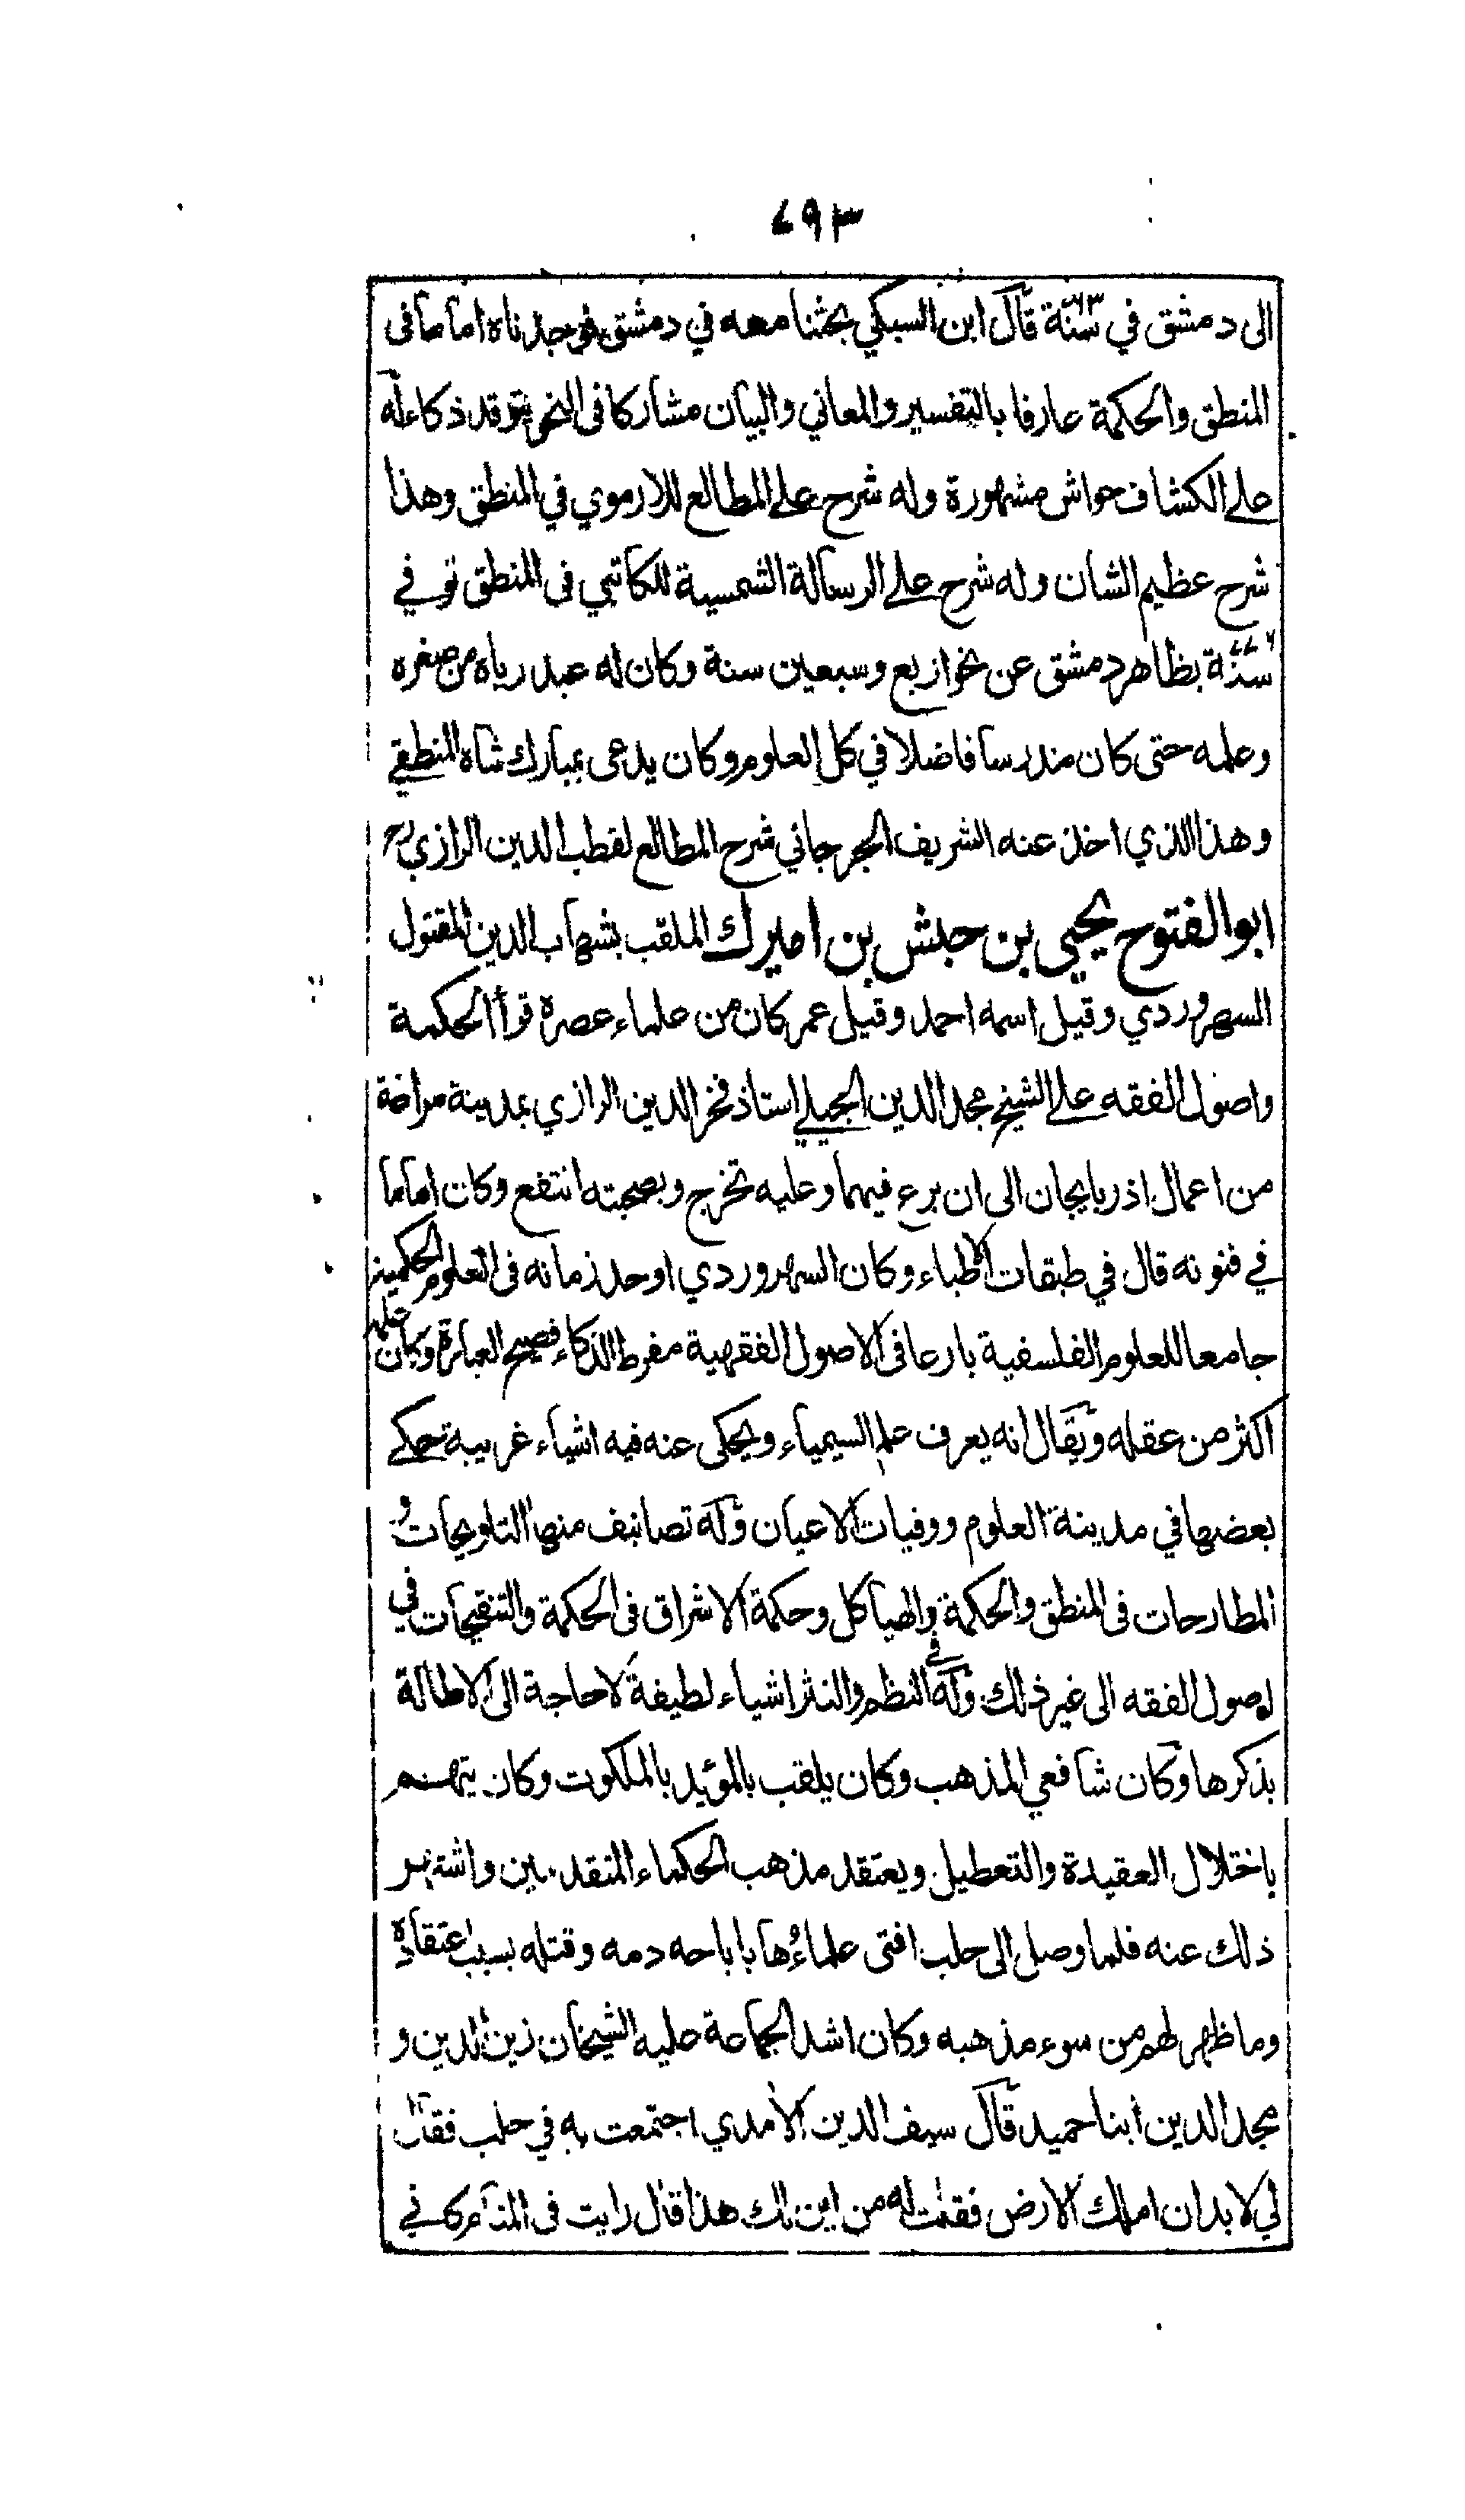 ٧٩٣
الى دمشق في سنة ٧٦٣ قال ابن السبكي بحثنا معه في دمشق فوجدناه اماما فى
المنطق والحكمة عارفا بالتفسير والمعاني والبيان مشاركا فى النحو يتوقد ذكاء له
على الكشاف حواش مشهورة وله شرح على المطالع للارموي في المنطق وهذا
شرح عظيم الشان وله شرح على الرسالة الشمسية للكاتبي فى المنطق توفي في
سنة بظاهر دمشق عن نحو اربع وسبعين سنة وكان له عبد رباه من صغره
وعلمه حتى كان مدرسا فاضلا في كل العلوم وكان يدعى بمبارك شاه المنطقي
وهذا الذي اخذ عنه الشريف الجرجاني شرح المطالع لقطب الدين الرازي رح
ابو الفتوح يحيى بن حبش بن اميرك الملقب بشهاب الدين المقتول
السهروردي وقيل اسمه احمد وقيل عمر كان من علماء عصره قرأ الحكمة
واصول الفقه على الشيخ مجد الدين الجيلي استاذ فخر الدين الرازي بمدينة مراغة
من اعمال اذربايجان الى ان برع فيهما وعليه تخرج وبصحبته انتفع وكان اماما
في فنونه قال في طبقات الاطباء وكان السهروردي اوحد زمانه فى العلوم الحكمية
جامعا للعلوم الفلسفية بارعا فى الاصول الفقهية مفرط الذكاء فصيح العبارة وكان علمه
اكثر من عقله ويقال انه يعرف علم السيمياء ويحكى عنه فيه اشياء غريبة حكي
بعضها في مدينة العلوم ووفيات الاعيان وله تصانيف منها التلويحات و
المطارحات فى المنطق والحكمة والهياكل وحكمة الاشراق فى الحكمة والتنقيحات في
اصول الفقه الى غير ذلك وله في النظم والنثر اشياء لطيفة لا حاجة الى الاطالة
بذكرها وكان شافعي المذهب وكان يلقب بالمؤيد بالملكوت وكان يتهم
باختلال العقيدة والتعطيل ويعتقد مذهب الحكماء المتقدمين واشتهر
ذلك عنه فلما وصل الى حلب افتى علماؤها باباحه دمه وقتله بسبب اعتقاده
وما ظهر لهم من سوء مذهبه وكان اشد الجماعة عليه الشيخان زين الدين و
مجد الدين ابنا حميد قال سيف الدين الآمدي اجتمعت به في حلب فقال
لي لا بد ان املك الارض فقلت له من اين لك هذا قال رايت فى المنام كاني